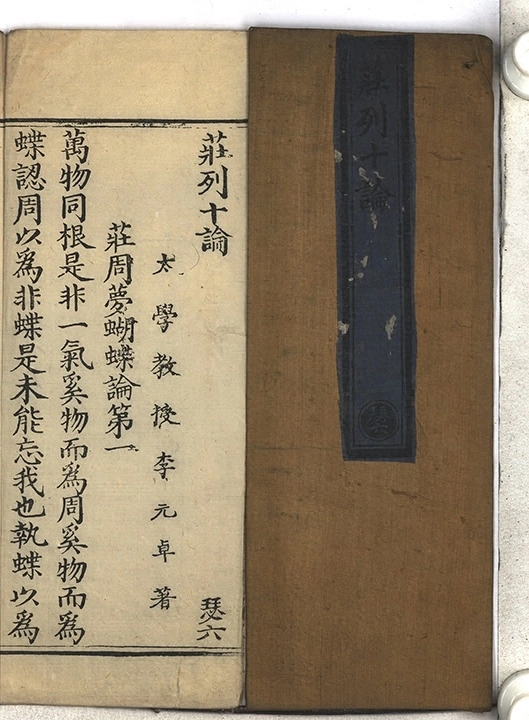 莊列十論
莊列十論 瑟六
太學教授李元卓著
莊周夢蝴蝶論第一
萬物同根是非一氣奚物而爲周奚物而爲
蝶認周以爲非蝶是未能忘我也執蝶以爲